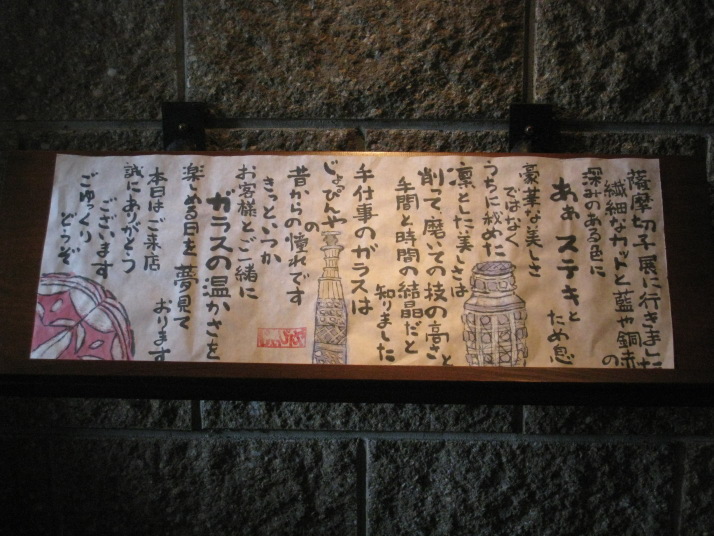 薩摩切子展に行きました
繊細なカットと藍や銅赤の
深みのある色に
あぁ ステキと
ため息
豪華な美しさ
ではなく
うちに秘めた
凛とした美しさは
削って、磨いての技の高さと
手間と時間の結晶だと
知りました
手仕事のガラスは
じょっぴんやの
昔からの憧れです
きっといつか
お客様とご一緒に
ガラスの温かさを
楽しめる日を 夢見て
おります
本日はご来店
誠にありがとう
ございます
ごゆっくり
どうぞ